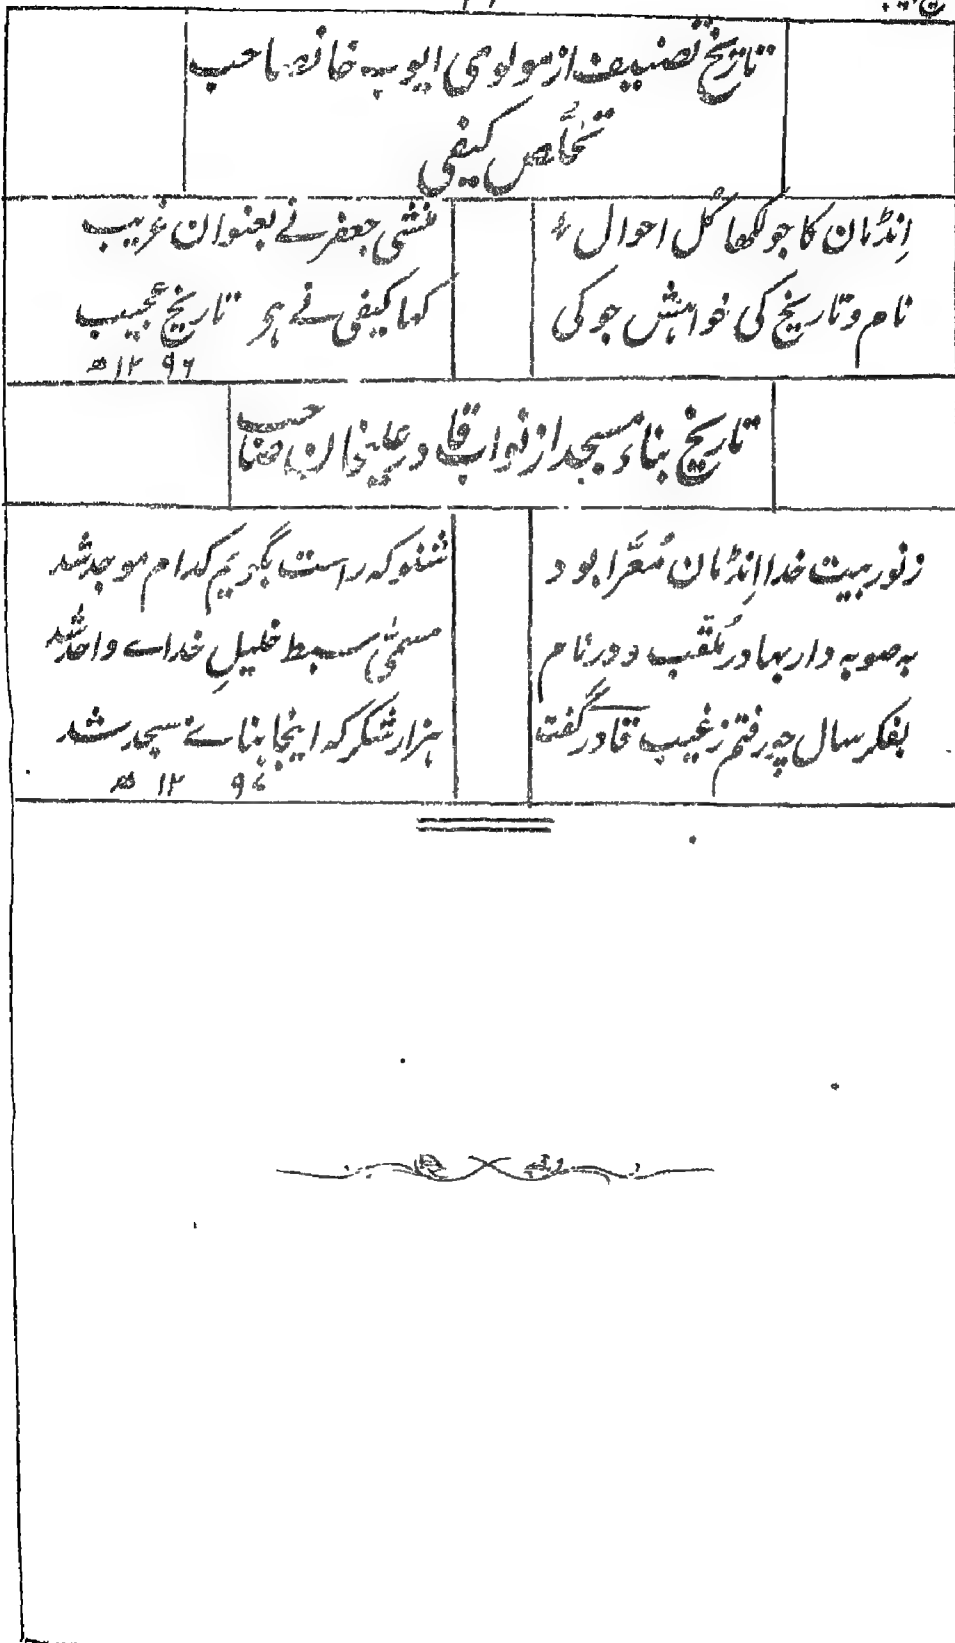 تاریخ تصنیف از مولوی ایوب خان صاحب
تخلُّص کیفی
اِنڈمان کا جو لکھا کُل احوال
منشی جعفر نے بعنوان غریب
نام و تاریخ کی خواہش جو کی
کہا کیفی نے ہو تاریخ عجیب
۱۲۹۶ ھ
تاریخ بناء مسجد از نواب قادر علیخان صاحب
ز نور بیت خدا اِنڈمان مُعَّرا بود
شنو کہ راست بگویم کدام موجد شد
بہ صوبہ دار بہادر مُلقب و در نام
مسمیٰ سبط خلیلِ خداے واحد شد
بفکر سال چو رفتم ز غیب قادر گفت
ہزار شکر کہ اینجا بناے مسجد شد
۱۲۹۶ ھ